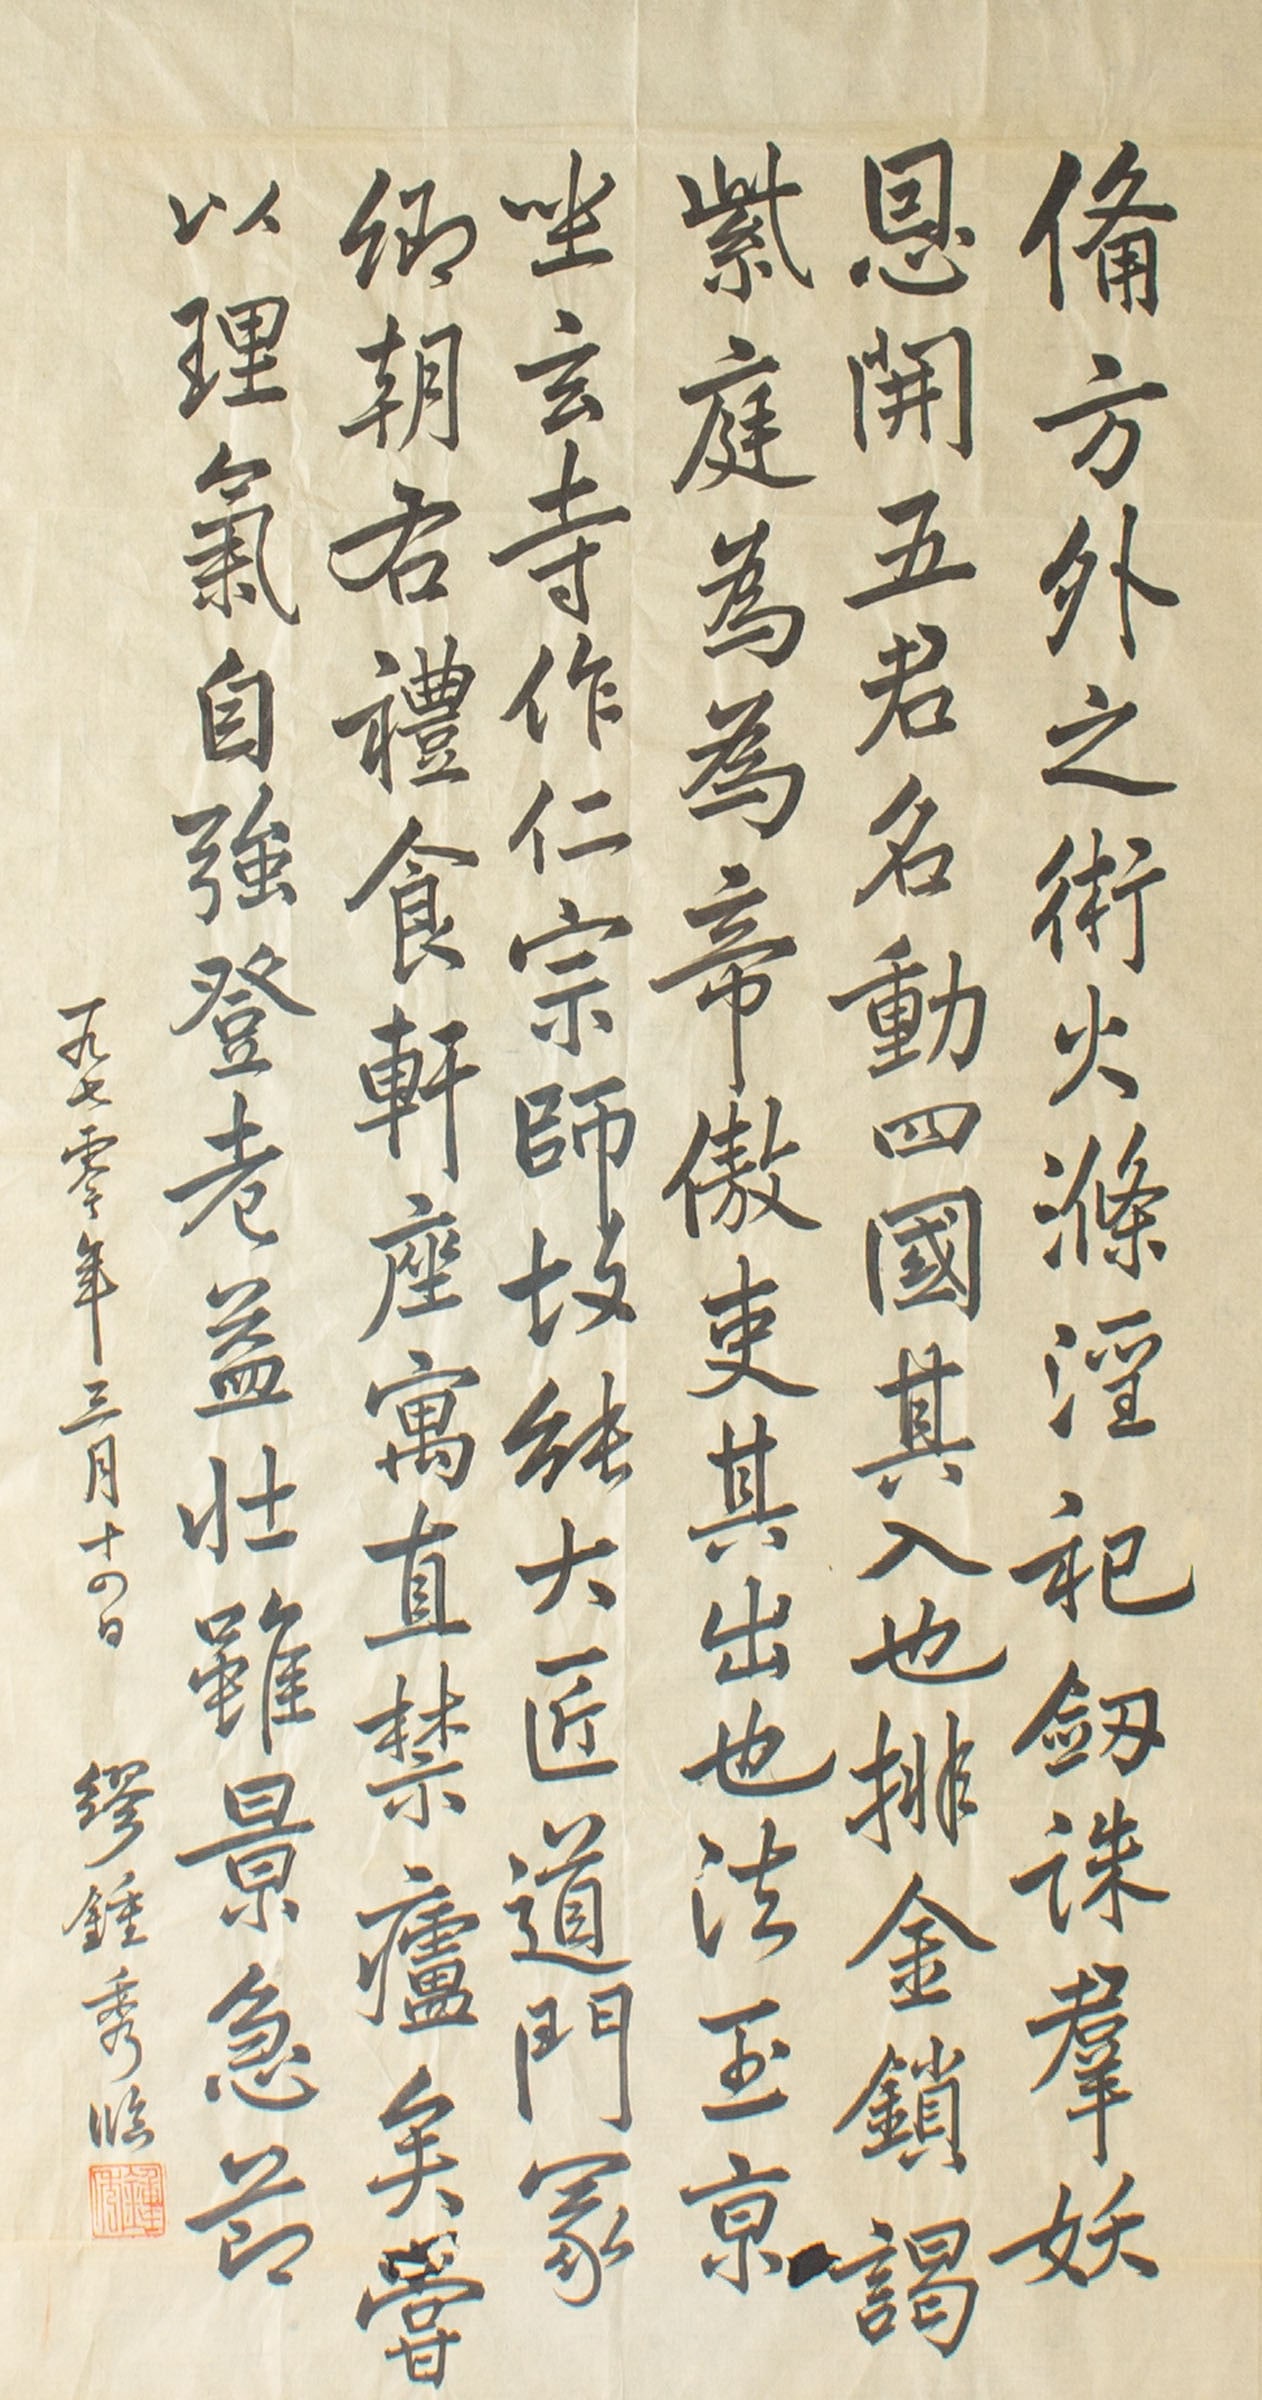 備方外之術火滌淫祀劔誅羣妖
恩開五君名動四國其入也排金鎖謁
紫庭為為帝傲吏其出也法玉京
坐玄寺作仁宗師故能大匠道門冢
卿朝右禮食軒座寓直禁廬矣嘗
以理氣自強登老益壯雖景急節
一九七零年三月十四日 繆鍾秀臨